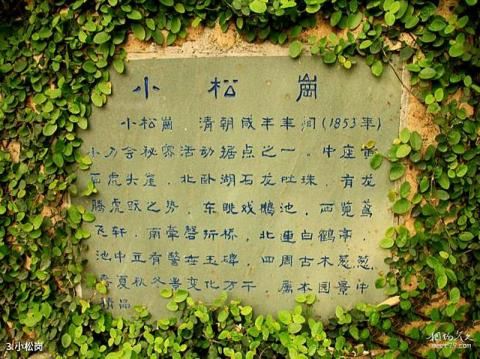 小松崗
小松崗 清朝咸丰年间(1853年)
小刀会秘密活动据点之一，中座
西虎头崖，北卧湖石龙吐珠，有龙
腾虎跃之势，东眺戏鹅池，西览鸢
飞轩，南牵磬折桥，北連白鹤亭
池中立有玉碑，四周古木葱葱，
春夏秋冬景变化万千，属本园景中
精品
3小松岗